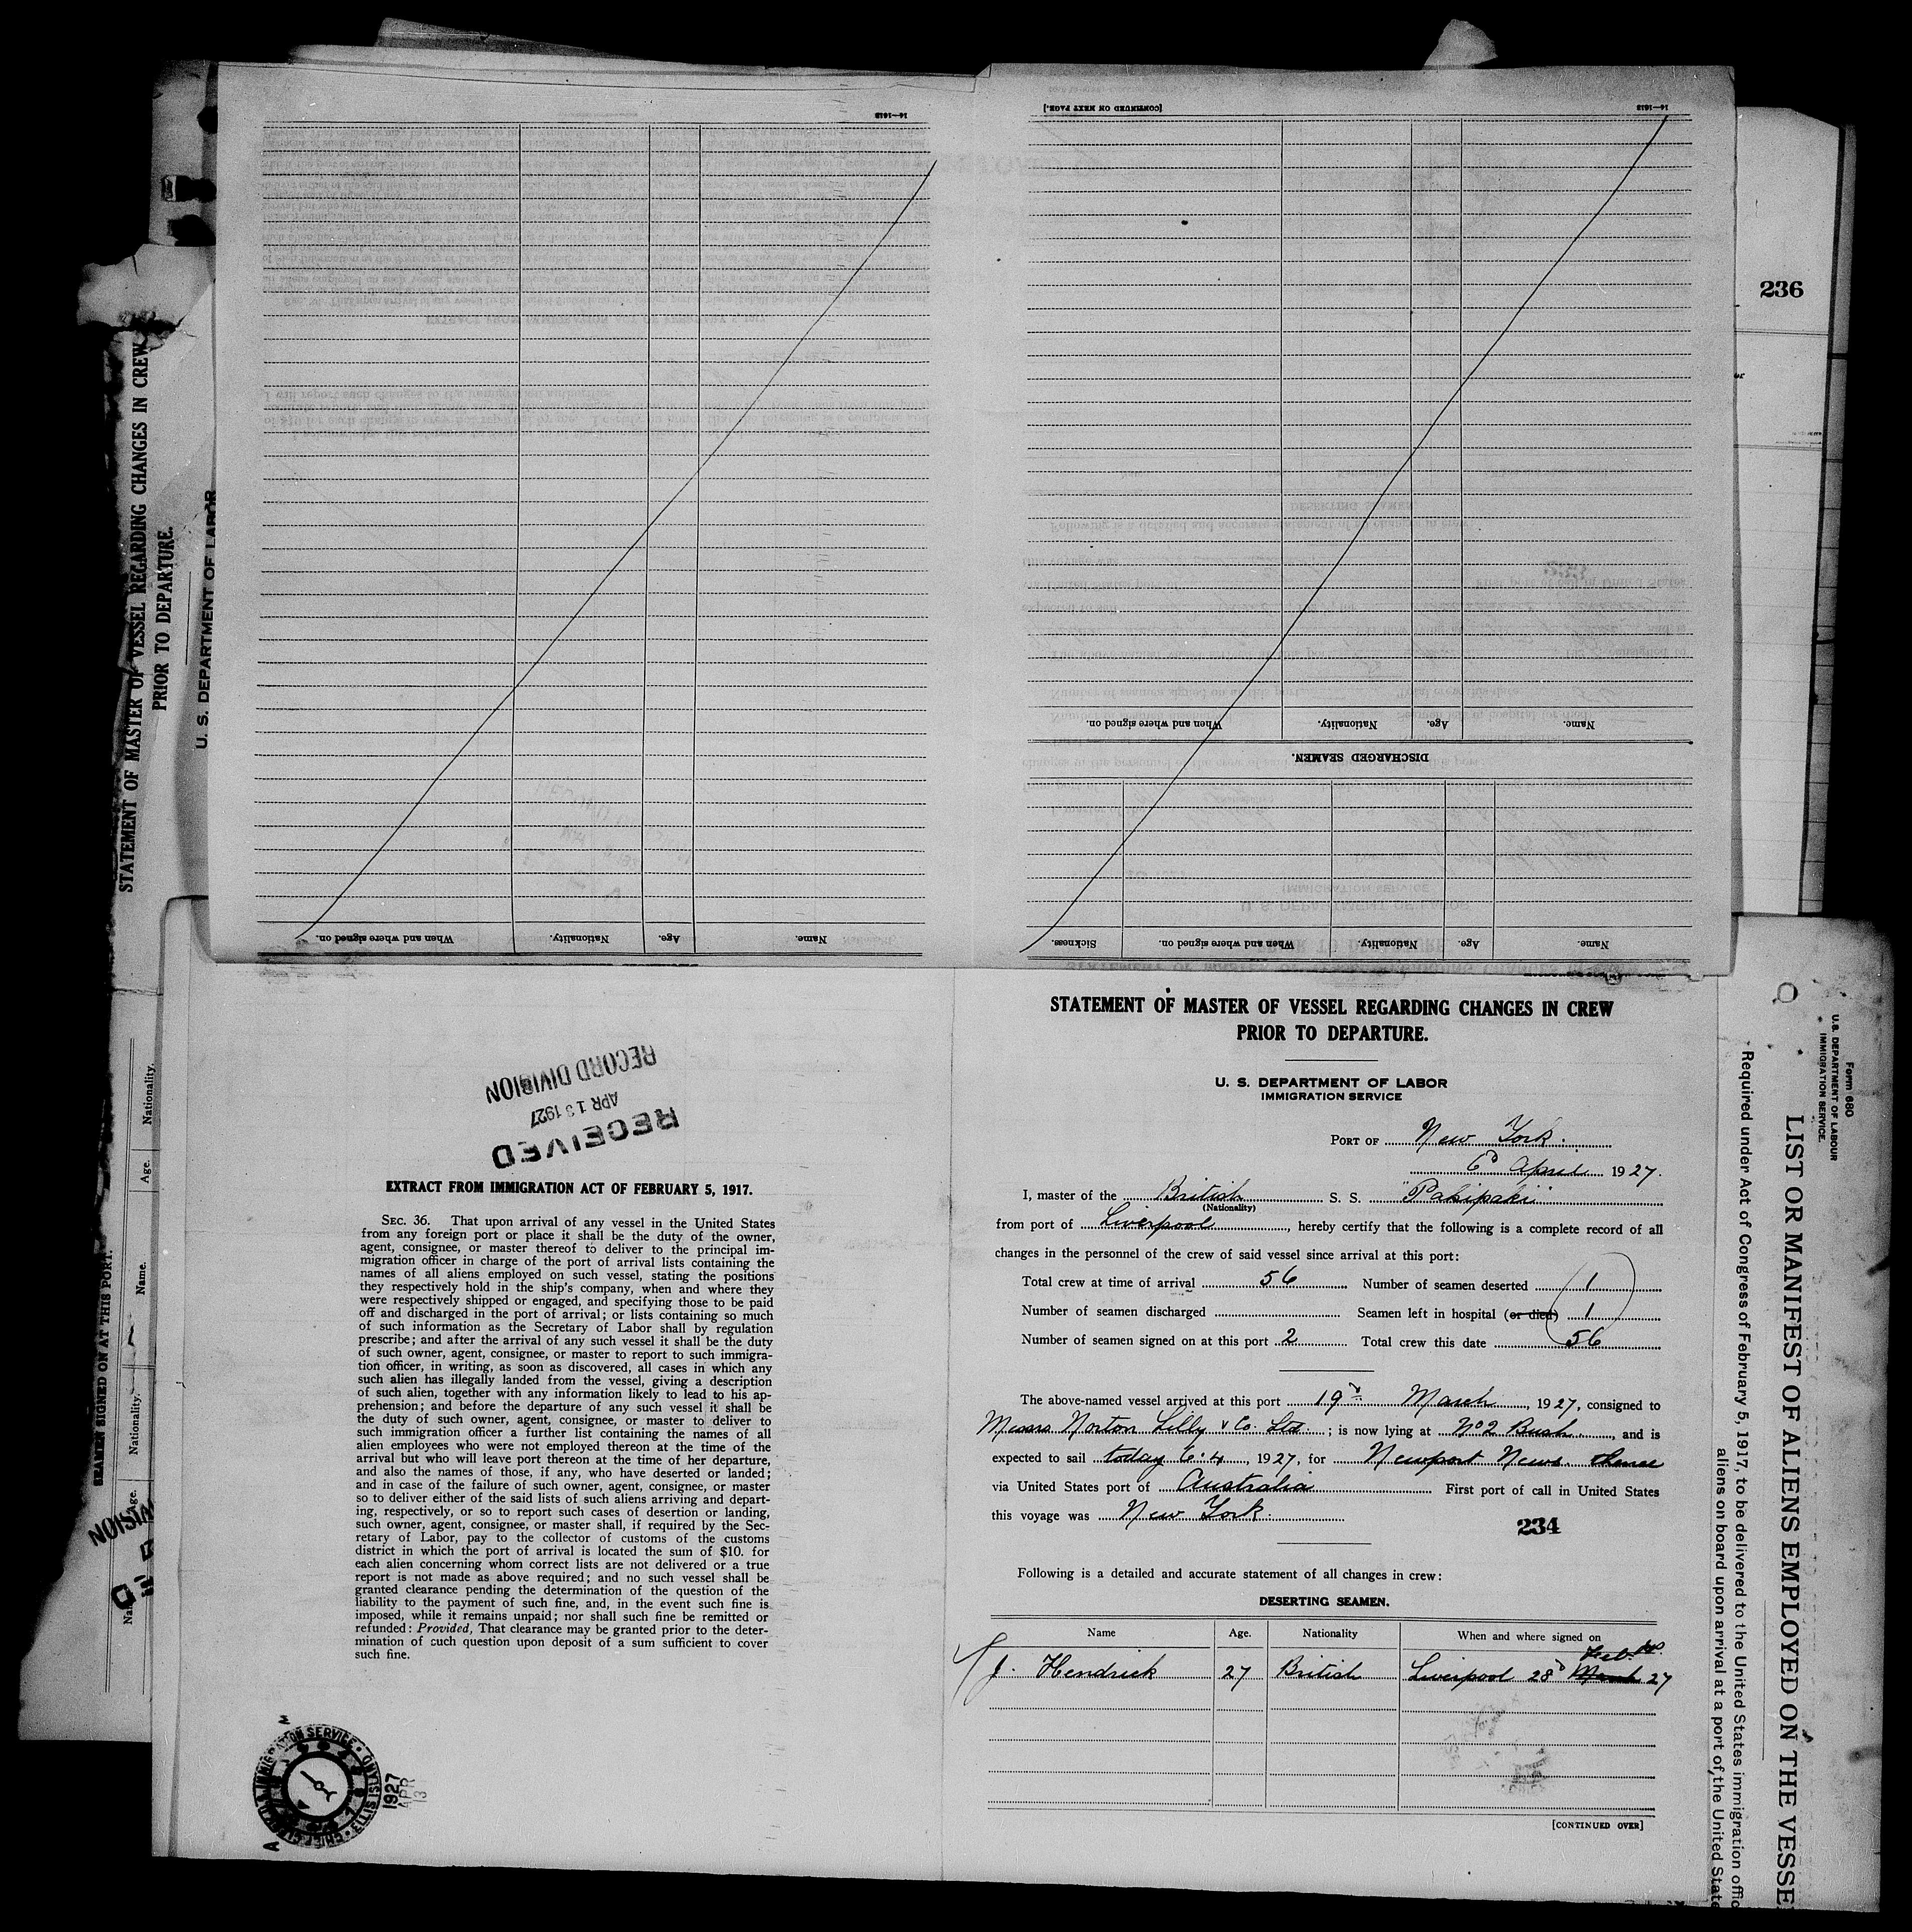 14—1618
[CONTINUED ON NEXT PAGE.]
14—1618
236
When and where signed on.
Nationality.
Age.
Name.
DISCHARGED SEAMEN.
Sickness.
When and where signed on.
Nationality.
Age.
Name.
When and where signed on.
Nationality.
Age.
Name.
STATEMENT OF MASTER OF VESSEL REGARDING CHANGES IN CREW
PRIOR TO DEPARTURE.
U. S. DEPARTMENT OF LABOR
SEAMEN SIGNED ON AT THIS PORT.
Name.
Age.
Nationality.
Nationality.
Age.
RECEIVED
APR 13 1927
RECORD DIVISION
EXTRACT FROM IMMIGRATION ACT OF FEBRUARY 5, 1917.
SEC. 36. That upon arrival of any vessel in the United States
from any foreign port or place it shall be the duty of the owner,
agent, consignee, or master thereof to deliver to the principal im-
migration officer in charge of the port of arrival lists containing the
names of all aliens employed on such vessel, stating the positions
they respectively hold in the ship's company, when and where they
were respectively shipped or engaged, and specifying those to be paid
off and discharged in the port of arrival; or lists containing so much
of such information as the Secretary of Labor shall by regulation
prescribe; and after the arrival of any such vessel it shall be the duty
of such owner, agent, consignee, or master to report to such immigra-
tion officer, in writing, as soon as discovered, all cases in which any
such alien has illegally landed from the vessel, giving a description
of such alien, together with any information likely to lead to his ap-
prehension; and before the departure of any such vessel it shall be
the duty of such owner, agent, consignee, or master to deliver to
such immigration officer a further list containing the names of all
alien employees who were not employed thereon at the time of the
arrival but who will leave port thereon at the time of her departure,
and also the names of those, if any, who have deserted or landed;
and in case of the failure of such owner, agent, consignee, or master
so to deliver either of the said lists of such aliens arriving and depart-
ing, respectively, or so to report such cases of desertion or landing,
such owner, agent, consignee, or master shall, if required by the Sec-
retary of Labor, pay to the collector of customs of the customs
district in which the port of arrival is located the sum of $10. for
each alien concerning whom correct lists are not delivered or a true
report is not made as above required; and no such vessel shall be
granted clearance pending the determination of the question of the
liability to the payment of such fine, and, in the event such fine is
imposed, while it remains unpaid; nor shall such fine be remitted or
refunded: Provided, That clearance may be granted prior to the deter-
mination of such question upon deposit of a sum sufficient to cover
such fine.
IMMIGRATION SERVICE · ELLIS ISLAND
1927
APR
13
STATEMENT OF MASTER OF VESSEL REGARDING CHANGES IN CREW
PRIOR TO DEPARTURE.
U. S. DEPARTMENT OF LABOR
IMMIGRATION SERVICE
PORT OF New York.
6th April 1927.
I, master of the British S. S. "Pakipaki"
(Nationality)
from port of Liverpool, hereby certify that the following is a complete record of all
changes in the personnel of the crew of said vessel since arrival at this port:
Total crew at time of arrival 56 Number of seamen deserted 1
Number of seamen discharged Seamen left in hospital (or died) 1
Number of seamen signed on at this port 2 Total crew this date 56
The above-named vessel arrived at this port 19th March, 1927, consigned to
Messrs Norton Lilly & Co. Ltd.; is now lying at No 2 Bush, and is
expected to sail today 6.4, 1927, for Newport News thence
via United States port of Australia First port of call in United States
this voyage was New York.
234
Following is a detailed and accurate statement of all changes in crew:
DESERTING SEAMEN.
Name Age. Nationality When and where signed on
Feb.
J. Hendrick 27 British Liverpool 28th March 27
[CONTINUED OVER]
Form 680
U.S. DEPARTMENT OF LABOUR
IMMIGRATION SERVICE.
LIST OR MANIFEST OF ALIENS EMPLOYED ON THE VESSE
Required under Act of Congress of February 5, 1917, to be delivered to the United States immigration offic
aliens on board upon arrival at a port of the United State